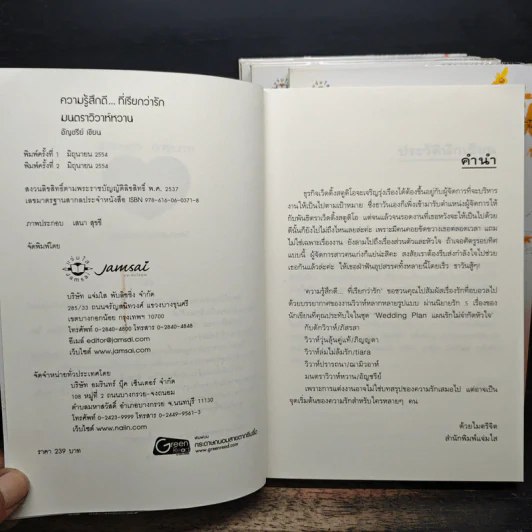 ความรู้สึกดี... ที่เรียกว่ารัก
มนตราวิวาห์หวาน
อัญชรีย์ เขียน
พิมพ์ครั้งที่ 1 มิถุนายน 2554
พิมพ์ครั้งที่ 2 มิถุนายน 2554
สงวนลิขสิทธิ์ตามพระราชบัญญัติลิขสิทธิ์ พ.ศ. 2537
เลขมาตรฐานสากลประจำหนังสือ ISBN 978-616-06-0371-8
ภาพประกอบ เสนา สุขขี
จัดพิมพ์โดย
Jamsai
บริษัท แจ่มใส พับลิชชิ่ง จำกัด
285/33 ถนนจรัญสนิทวงศ์ แขวงบางขุนศรี
เขตบางกอกน้อย กรุงเทพฯ 10700
โทรศัพท์ 0-2840-4800 โทรสาร 0-2840-4848
อีเมล์ editor@jamsai.com
เว็บไซต์ www.jamsai.com
จัดจำหน่ายทั่วประเทศโดย
บริษัท อมรินทร์ บุ๊ค เซ็นเตอร์ จำกัด
108 หมู่ที่ 2 ถนนบางกรวย-จงถนอม
ตำบลมหาสวัสดิ์ อำเภอบางกรวย จ.นนทบุรี 11130
โทรศัพท์ 0-2423-9999 โทรสาร 0-2449-9561-3
เว็บไซต์ www.naiin.com
ราคา 239 บาท
Green Read
พิมพ์ด้วย
กระดาษถนอมสายตากรีนรี้ด
www.greenread.com
คำนำ
ธุรกิจเว็ดดิ้งสตูดิโอจะเจริญรุ่งเรืองได้ต้องขึ้นอยู่กับผู้จัดการที่จะบริหาร
งานให้เป็นไปตามเป้าหมาย ซึ่งชาวันเองก็เพิ่งเข้ามารับตำแหน่งผู้จัดการให้
กับพันธิตราเว็ดดิ้งสตูดิโอ แต่จนแล้วจนรอดงานที่เธอหวังจะให้เป็นไปด้วย
ดีนั้นก็ยังไปไม่ถึงไหนเลยล่ะค่ะ เพราะมีคนคอยขัดขวางเธอตลอดเวลา แถม
ไม่ใช่เฉพาะเรื่องงาน ยังลามไปถึงเรื่องส่วนตัวและหัวใจ ถ้าเจอศัตรูรอบทิศ
แบบนี้ ผู้จัดการสาวคนเก่งก็แย่น่ะสิคะ สงสัยเราต้องรีบส่งกำลังใจไปช่วย
เธอกันแล้วล่ะค่ะ ให้เธอฝ่าฟันอุปสรรคทั้งหลายนี้โดยเร็ว ชาวันสู้ๆ!
'ความรู้สึกดี... ที่เรียกว่ารัก' ขอชวนคุณไปสัมผัสเรื่องรักที่อบอวลไป
ด้วยบรรยากาศของงานวิวาห์หลากหลายรูปแบบ ผ่านนิยายรัก 5 เรื่องของ
นักเขียนที่คุณประทับใจในชุด 'Wedding Plan แผนรักไม่จำกัดหัวใจ'
กับดักวิวาห์/ภัสรสา
วิวาห์วุ่นลุ้นคู่แท้/กัญญดา
วิวาห์ล่มไม่ลืมรัก/tiara
วิวาห์ปรารถนา/ฌามิวอาห์
มนตราวิวาห์หวาน/อัญชรีย์
เพราะการแต่งงานอาจไม่ใช่บทสรุปของความรักเสมอไป แต่อาจเป็น
จุดเริ่มต้นของความรักสำหรับใครหลายๆ คน
ด้วยไมตรีจิต
สำนักพิมพ์แจ่มใส